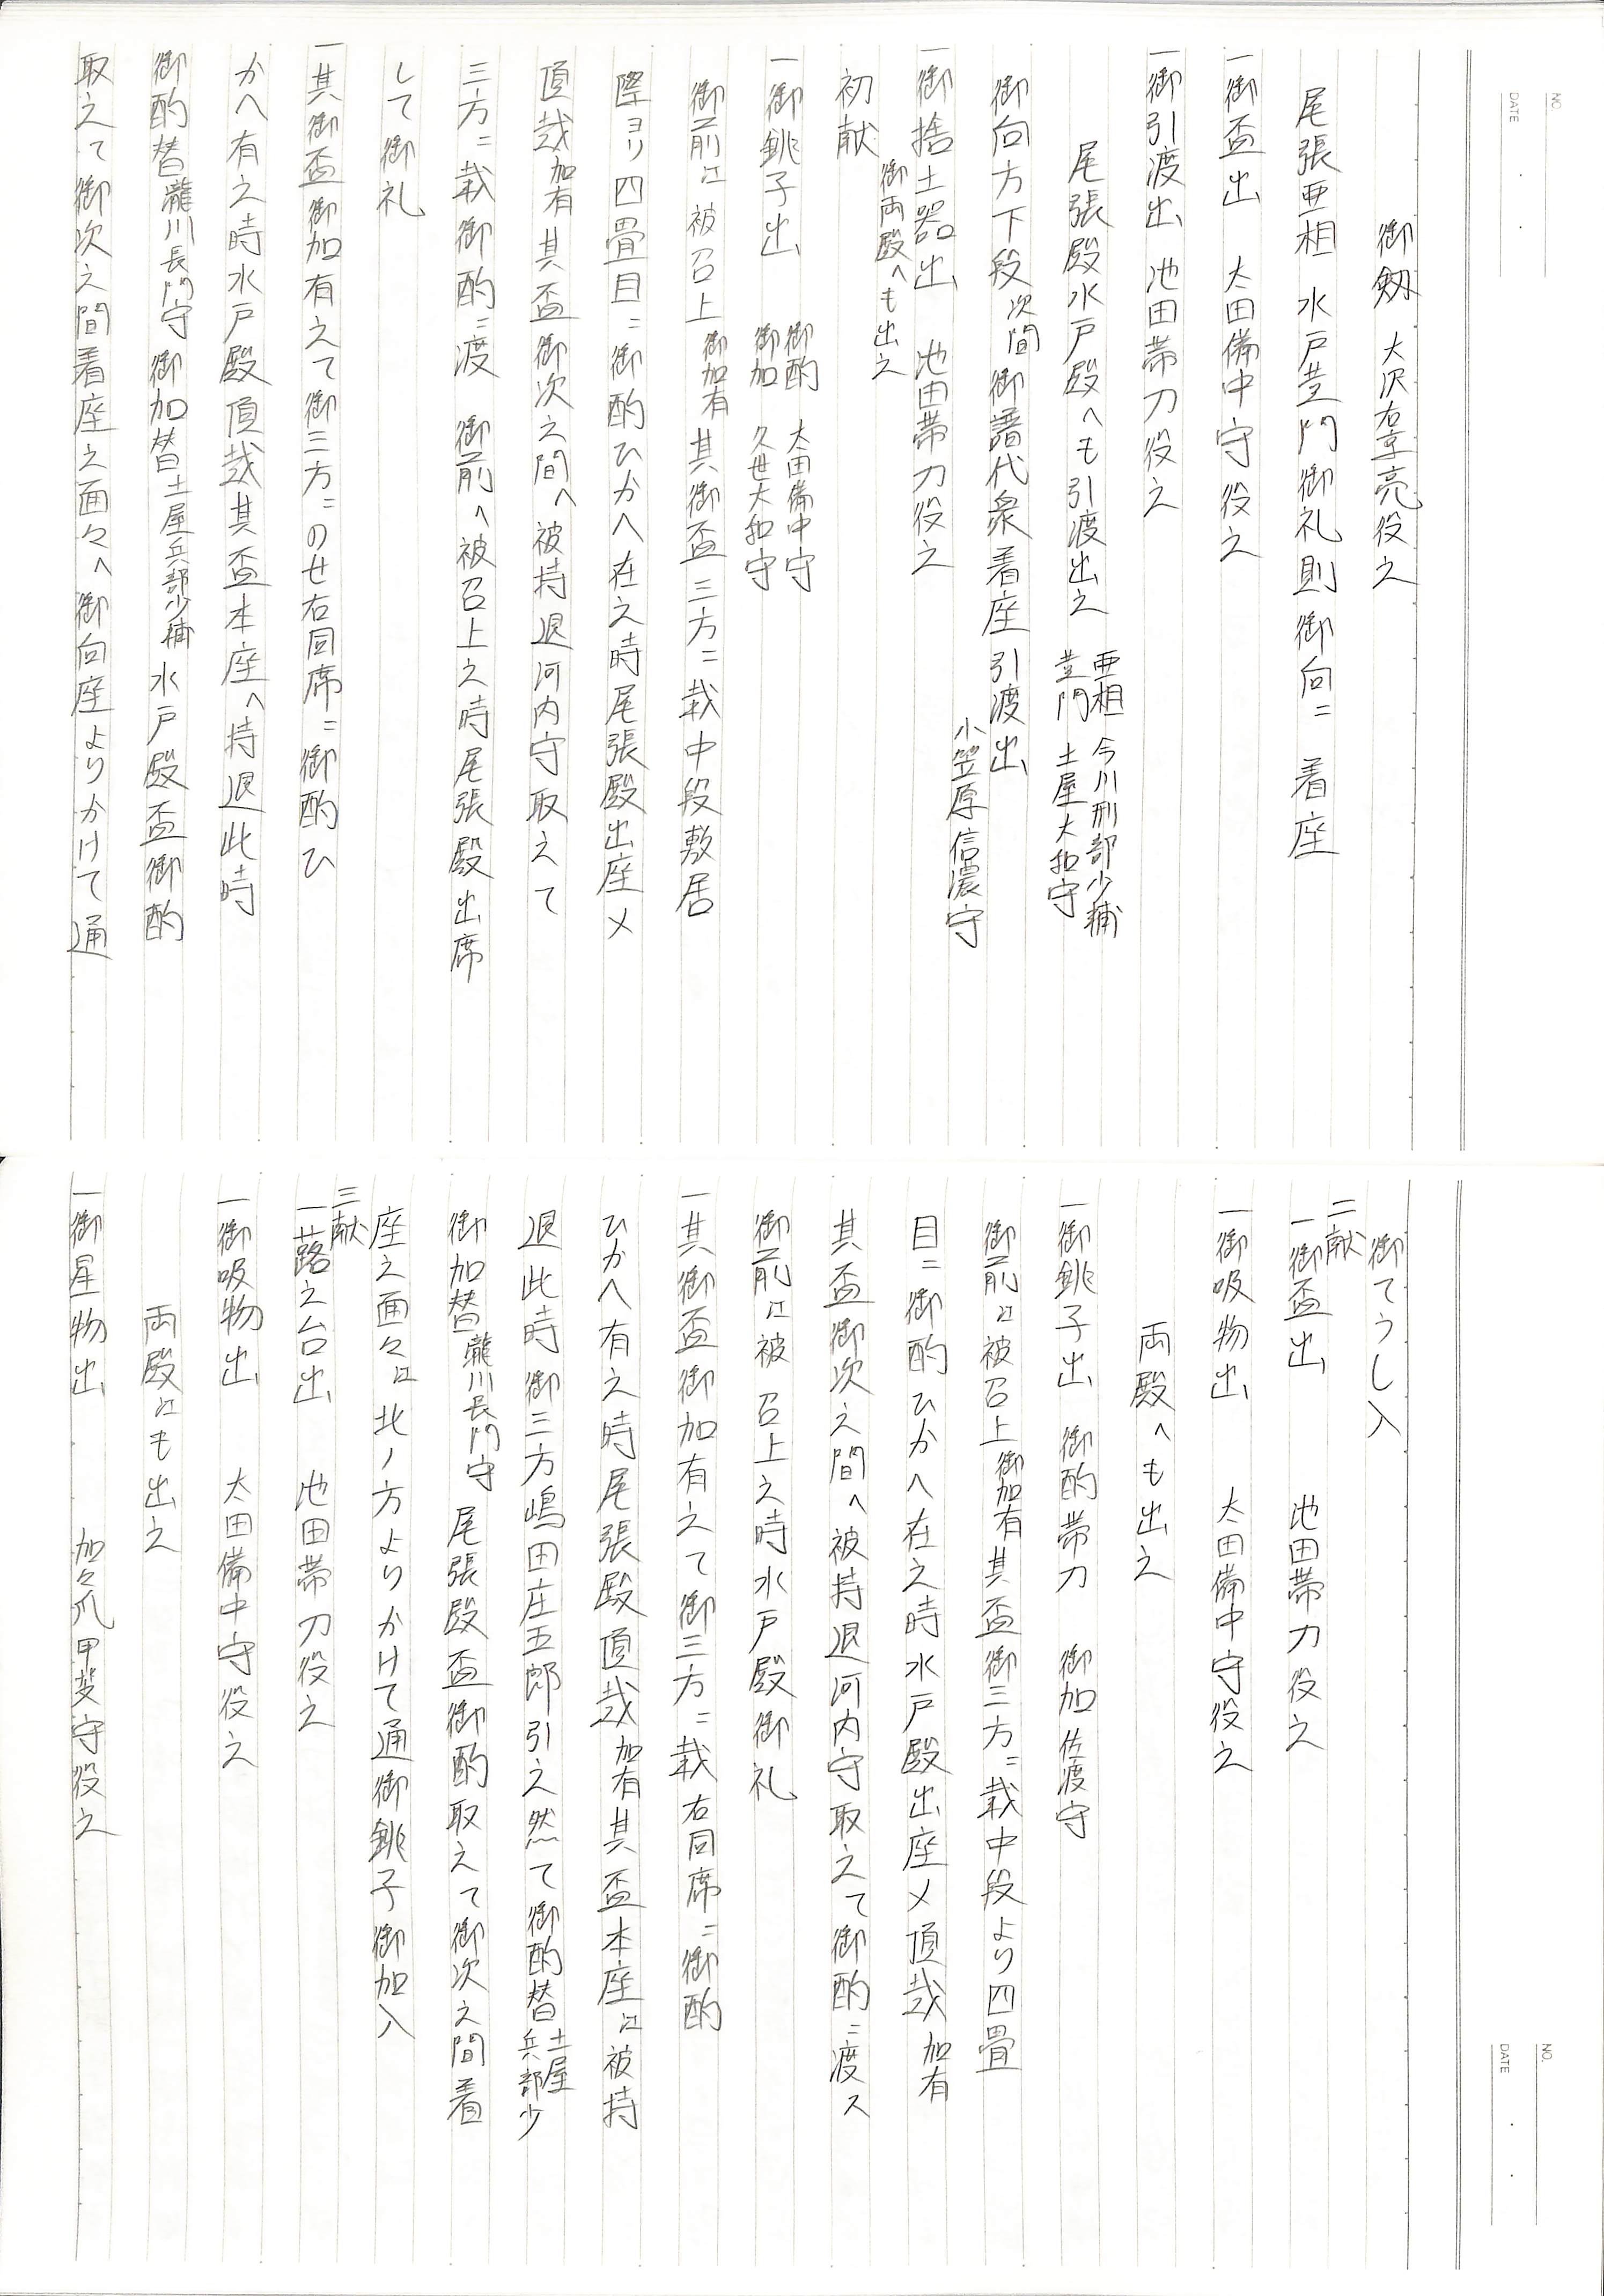 NO.
DATE
御剱 大沢右京亮役之
尾張亜相 水戸黄門御礼則御向ニ 着座
一御盃出 太田備中守役之
一御引渡出 池田帯刀役之
尾張殿水戸殿へも引渡出之 亜相 今川刑部少補
黄門 土屋大和守
御向方下段次間御譜代衆着座 引渡出
小笠原信濃守
一御捨土器出 池田帯刀役之
御両殿へも出之
初献
一御銚子出 御酌 太田備中守
御加 久世大和守
御前江被召上御加有其御盃三方ニ載中段敷居
際ヨリ四畳目ニ御酌ひかへ在之時尾張殿出座〆
頂戴加有其盃御次之間へ被持退河内守取之て
三方ニ載御酌ニ渡 御前へ被召上之時尾張殿出席
して御礼
一其御盃御加有之て御三方ニのせ右同席ニ御酌ひ
かへ有之時水戸殿頂戴其盃本座へ持退此時
御酌替瀧川長門守御加替土屋兵部少補水戸殿盃御酌
取之て御次之間着座之面々へ御向座よりかけて通
NO.
DATE
御てうし入
二献
一御盃出 池田帯刀役之
一御吸物出 太田備中守役之
両殿へも出之
一御銚子出 御酌帯刀 御加佐渡守
御前江被召上御加有其盃御三方ニ載中段より四畳
目ニ御酌ひかへ在之時水戸殿出座〆頂戴加有
其盃御次之間へ被持退河内守取之て御酌ニ渡ス
御前江被召上之時水戸殿御礼
一其御盃御加有之て御三方ニ載右同席ニ御酌
ひかへ有之時尾張殿頂戴加有其盃本座江被持
退此時御三方嶋田庄五郎引之然て御酌替土屋
兵部少
御加替瀧川長門守尾張殿盃御酌取之て御次之間着
座之面々江北ノ方よりかけて通御銚子御加入
三献
一蕗之台出 池田帯刀役之
一御吸物出 太田備中守役之
両殿江も出之
一御星物出 加々爪甲斐守役之